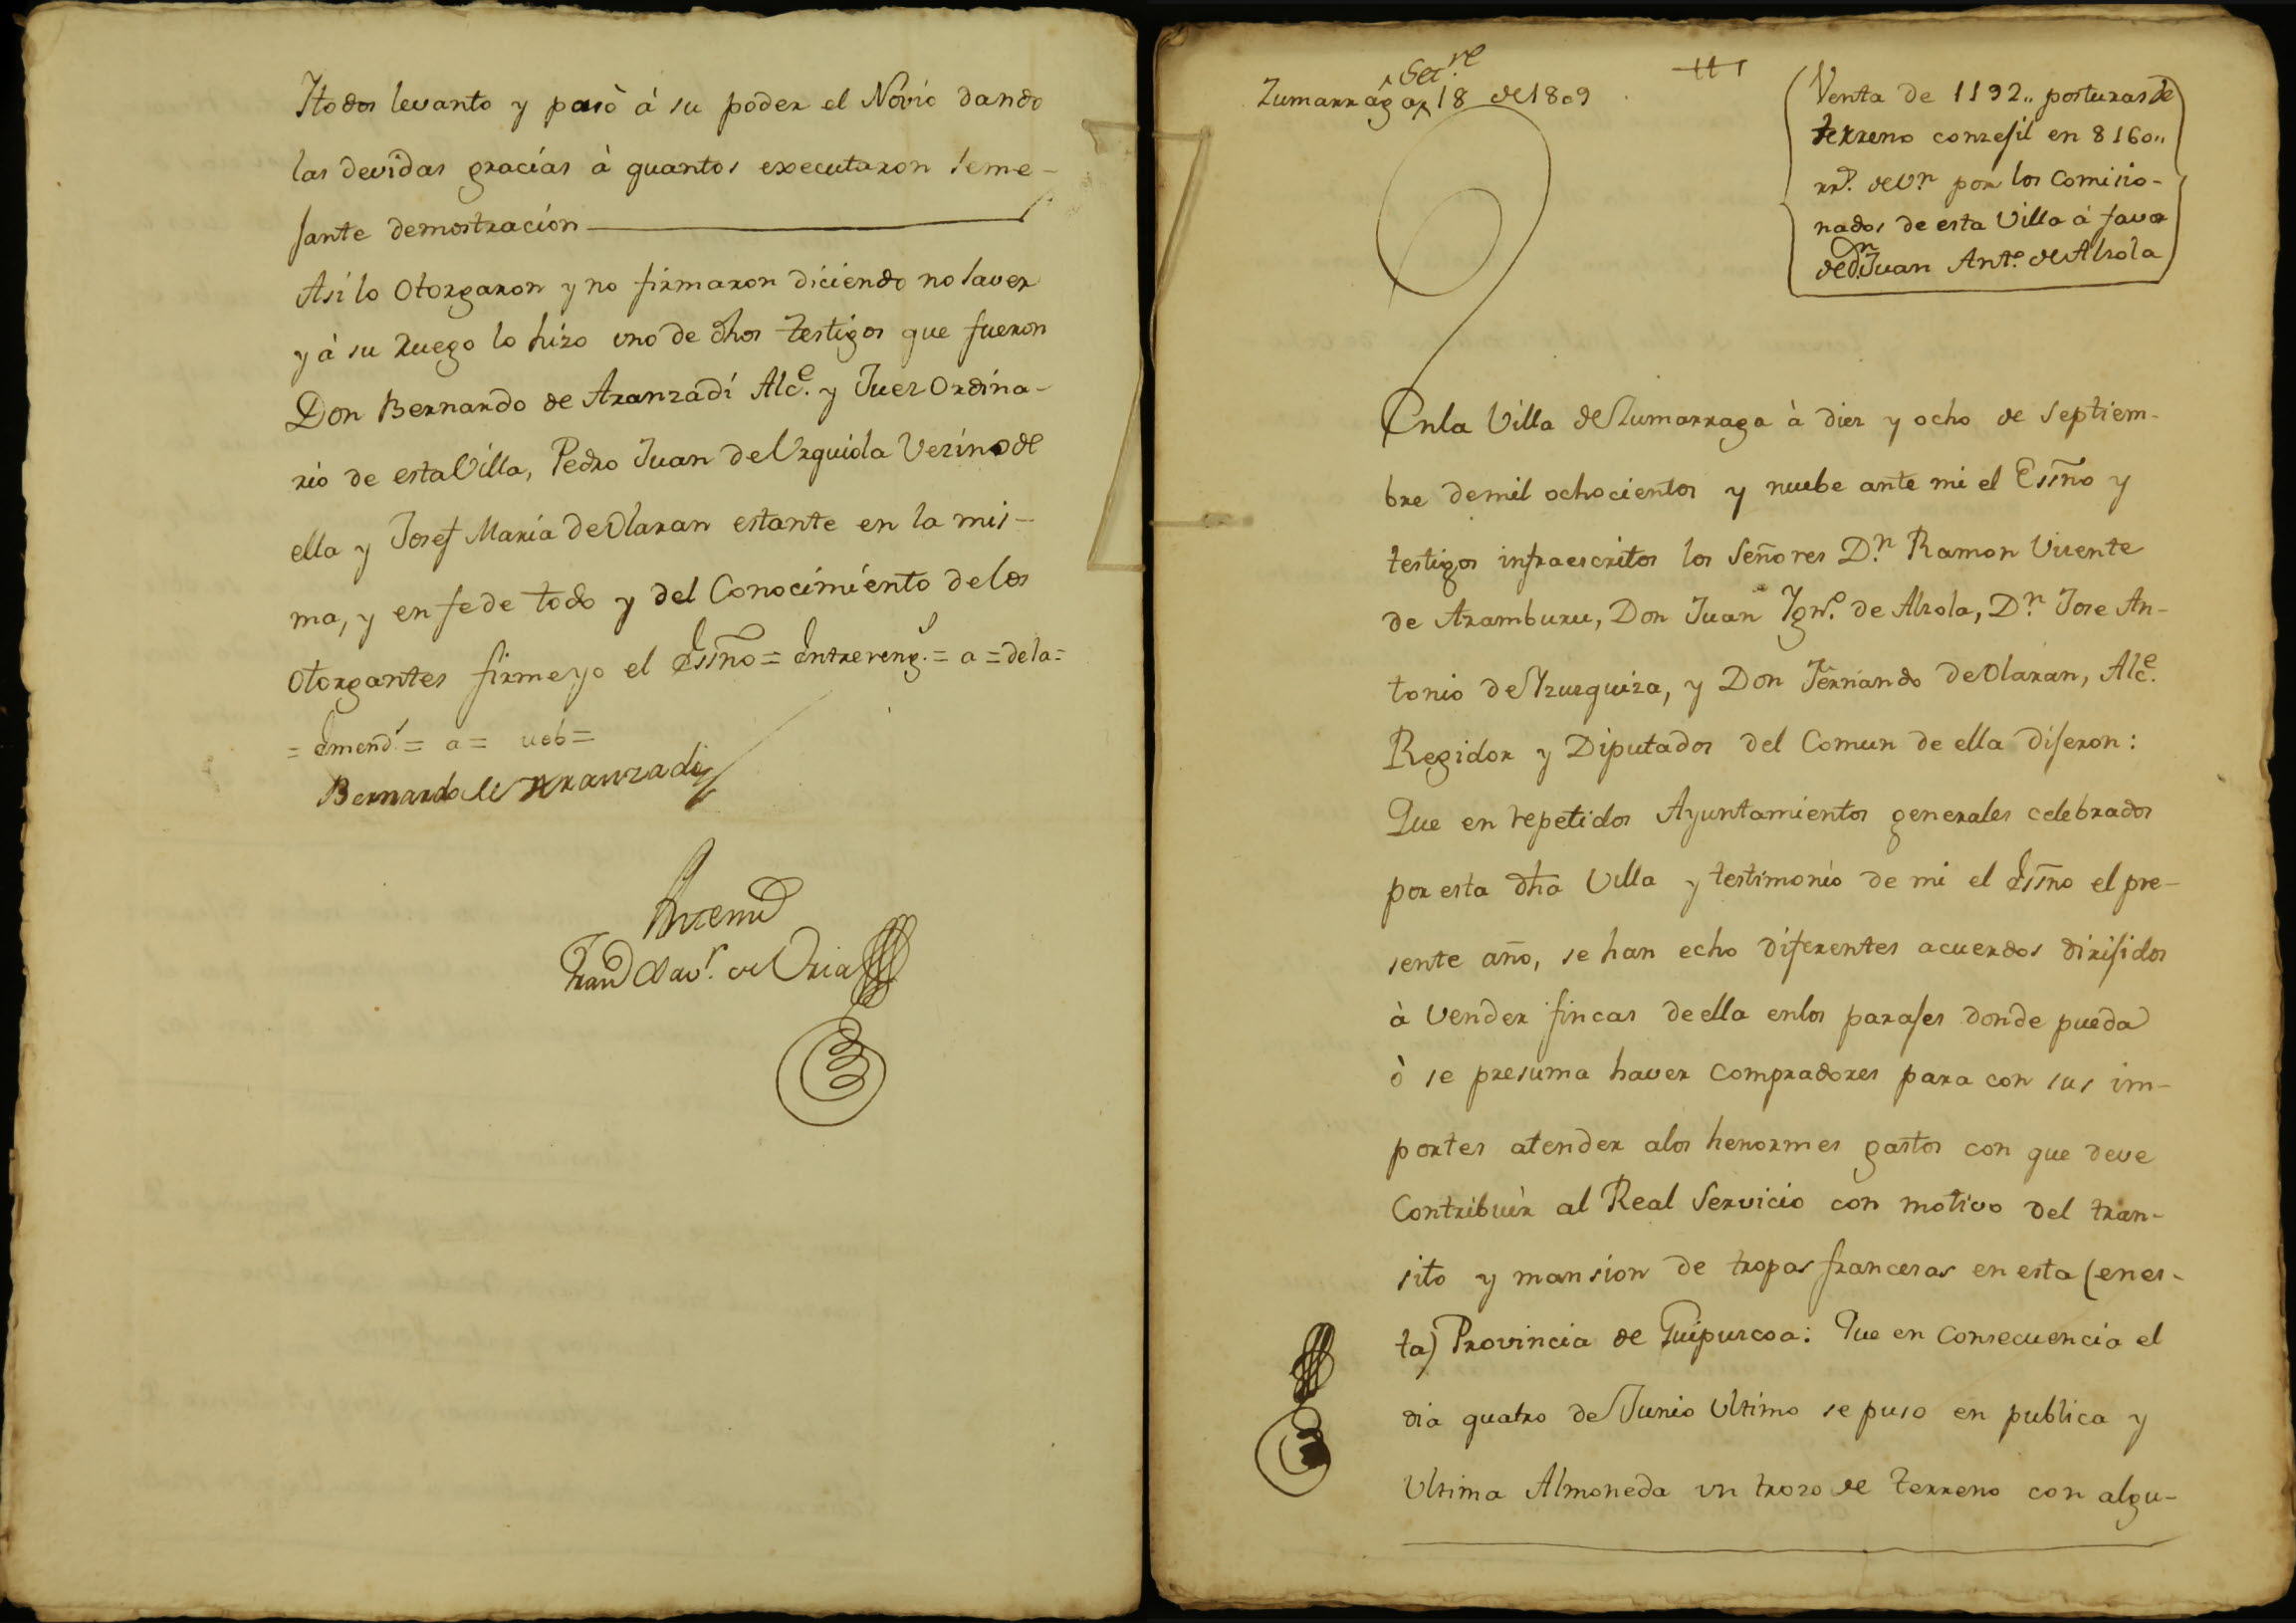 Ytodos levanto y pasò á su poder el Novio dando
las devidas gracias à quantos executaron seme-
jante demostracion
Asi lo otorgaron y no firmaron diciendo no saver
y á su ruego lo hizo vno de dhos testigos que fueron
Don Bernardo de Aranzadi Alc.e y Juez Ordina-
rio de esta Villa, Pedro Juan de Urquiola Vezino de
ella y Josef Maria de Olaran estante en la mis-
ma, y en fe de todo y del Conocimiento de los
otorgantes firme yo el Essño = Entrereng.s = a = de la =
= Emend.s = a = ueb =
Bernardo de Aranzadi
Antemi
de Oria
Zumarraga 18 de 1809
Set.re
Venta de 1192,, posturas de
terreno conzejil en 8160,,
rr.s de v.n por los Comisio-
nados de esta Villa á favor
de D.n Juan Ant.o de Alzola
En la Villa de Zumarraga à diez y ocho de Septiem-
bre de mil ochocientos y nuebe ante mi el Essño y
testigos infraescritos los Señores D.n Ramon Vicente
de Aramburu, Don Juan Ygn.o de Alzola, D.n Jose An-
tonio de Yzuzquiza, y Don Fernando de Olaran, Alc.e
Regidor y Diputados del Comun de ella dijeron:
Que en repetidos Ayuntamientos generales celebrados
por esta dha Villa y testimonio de mi el Essño el pre-
sente año, se han echo diferentes acuerdos dirijidos
à vender fincas de ella en los parajes donde pueda
ò se presuma haver compradores para con sus im-
portes atender a los henormes gastos con que deve
Contribuir al Real Servicio con motivo del tran-
sito y mansion de tropas franceses en esta (en es-
ta) Provincia de Guipuzcoa: Que en consecuencia el
dia quatro de Junio ultimo se puso en publica y
Ultima Almoneda vn trozo de terreno con algu-